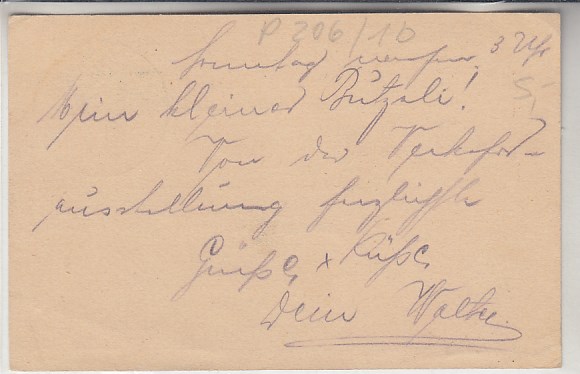 P 206/10
Sonntag nachm. 3 Uhr
5,
Mein kleines Butzeli!
Von der Verkehrs-
ausstellung herzlichste
Grüße + Küße,
Dein Walter